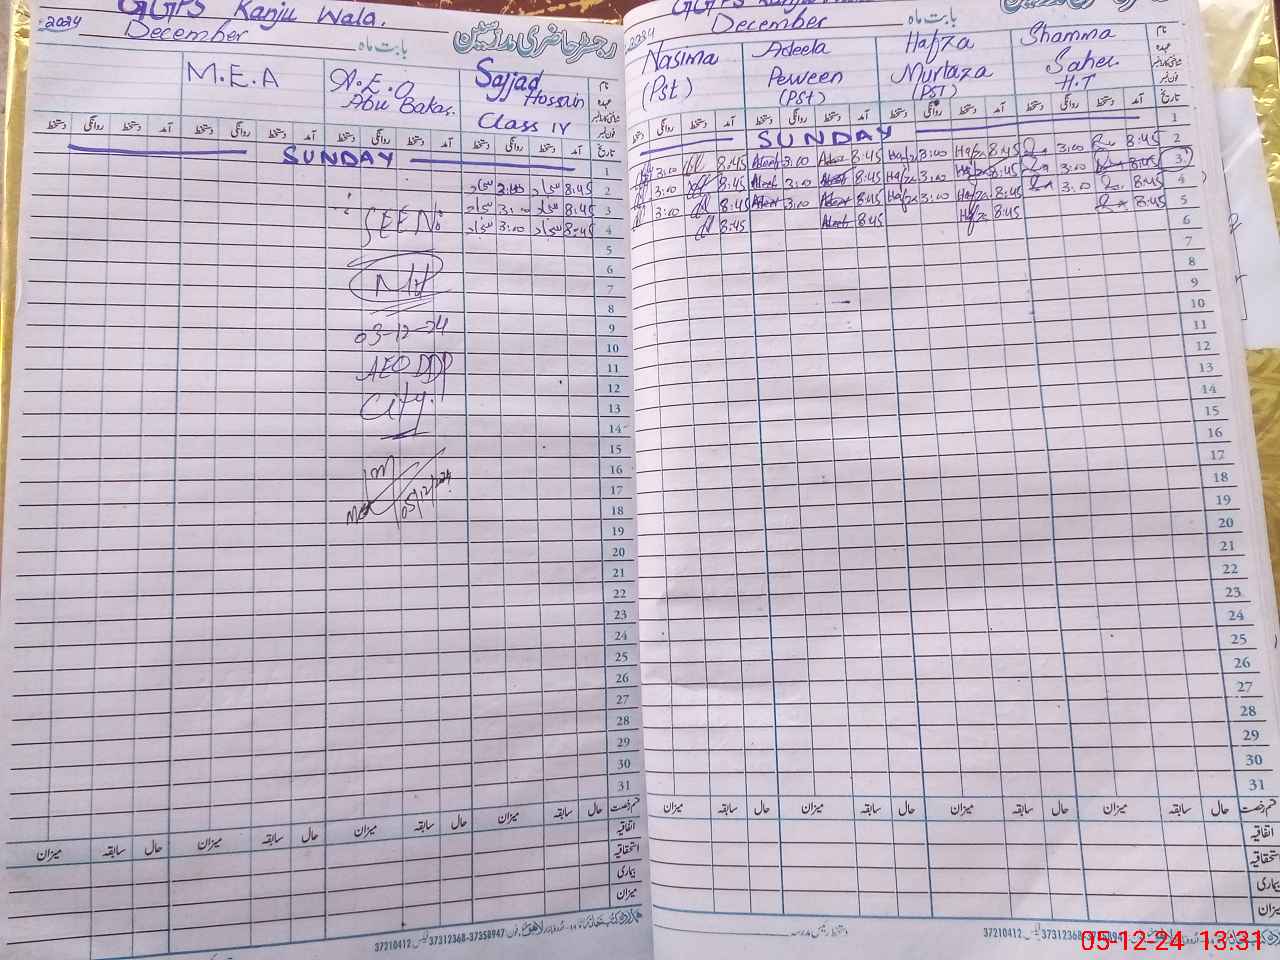 GGPS Kanju Wala.
2024 December بابت ماہ رجسٹر حاضری مدرسین
M.E.A
A.E.O
Abu Bakar.
Sajjad
Hossain
Class IV
دستخط روانگی دستخط آمد دستخط روانگی دستخط آمد دستخط روانگی دستخط آمد دستخط روانگی دستخط آمد تاریخ
SUNDAY 1
سجاد 2:45 سجاد 8:45 2
سجاد 3:00 سجاد 8:45 3
سجاد 3:00 سجاد 8:45 4
SEEN
5
6
7
8
03-12-24 9
10
AEO DDP 11
12
City. 13
14
15
16
17
05/12/2024 18
19
20
21
22
23
24
25
26
27
28
29
30
31
میزان سابقہ حال میزان سابقہ حال میزان سابقہ حال میزان سابقہ حال قسم رخصت
اتفاقیہ
استحقاقیہ
بیماری
میزان
37210412 37312368-37358947
2024 December بابت ماہ
Nasima
(Pst)
Adeela
Perween
(PSt)
Hafza
Murtaza
(PST)
Shamma
Saher
H.T
دستخط روانگی دستخط آمد دستخط روانگی دستخط آمد دستخط روانگی دستخط آمد دستخط روانگی دستخط آمد تاریخ
SUNDAY 1
3:00 8:45 3:00 8:45 Hafza 3:00 Hafza 8:45 3:00 8:45 2
3:00 8:45 3:00 8:45 Hafza 3:00 Hafza 8:45 3:00 8:45 3
3:00 8:45 3:00 8:45 Hafza 3:00 Hafza 8:45 3:00 8:45 4
8:45 8:45 8:45 8:45 5
6
7
8
9
10
11
12
13
14
15
16
17
18
19
20
21
22
23
24
25
26
27
28
29
30
31
میزان سابقہ حال میزان سابقہ حال میزان سابقہ حال میزان سابقہ حال قسم رخصت
اتفاقیہ
استحقاقیہ
بیماری
میزان
دستخط رئیس مدرسہ
37210412 37312368-3735894
05-12-24 13:31